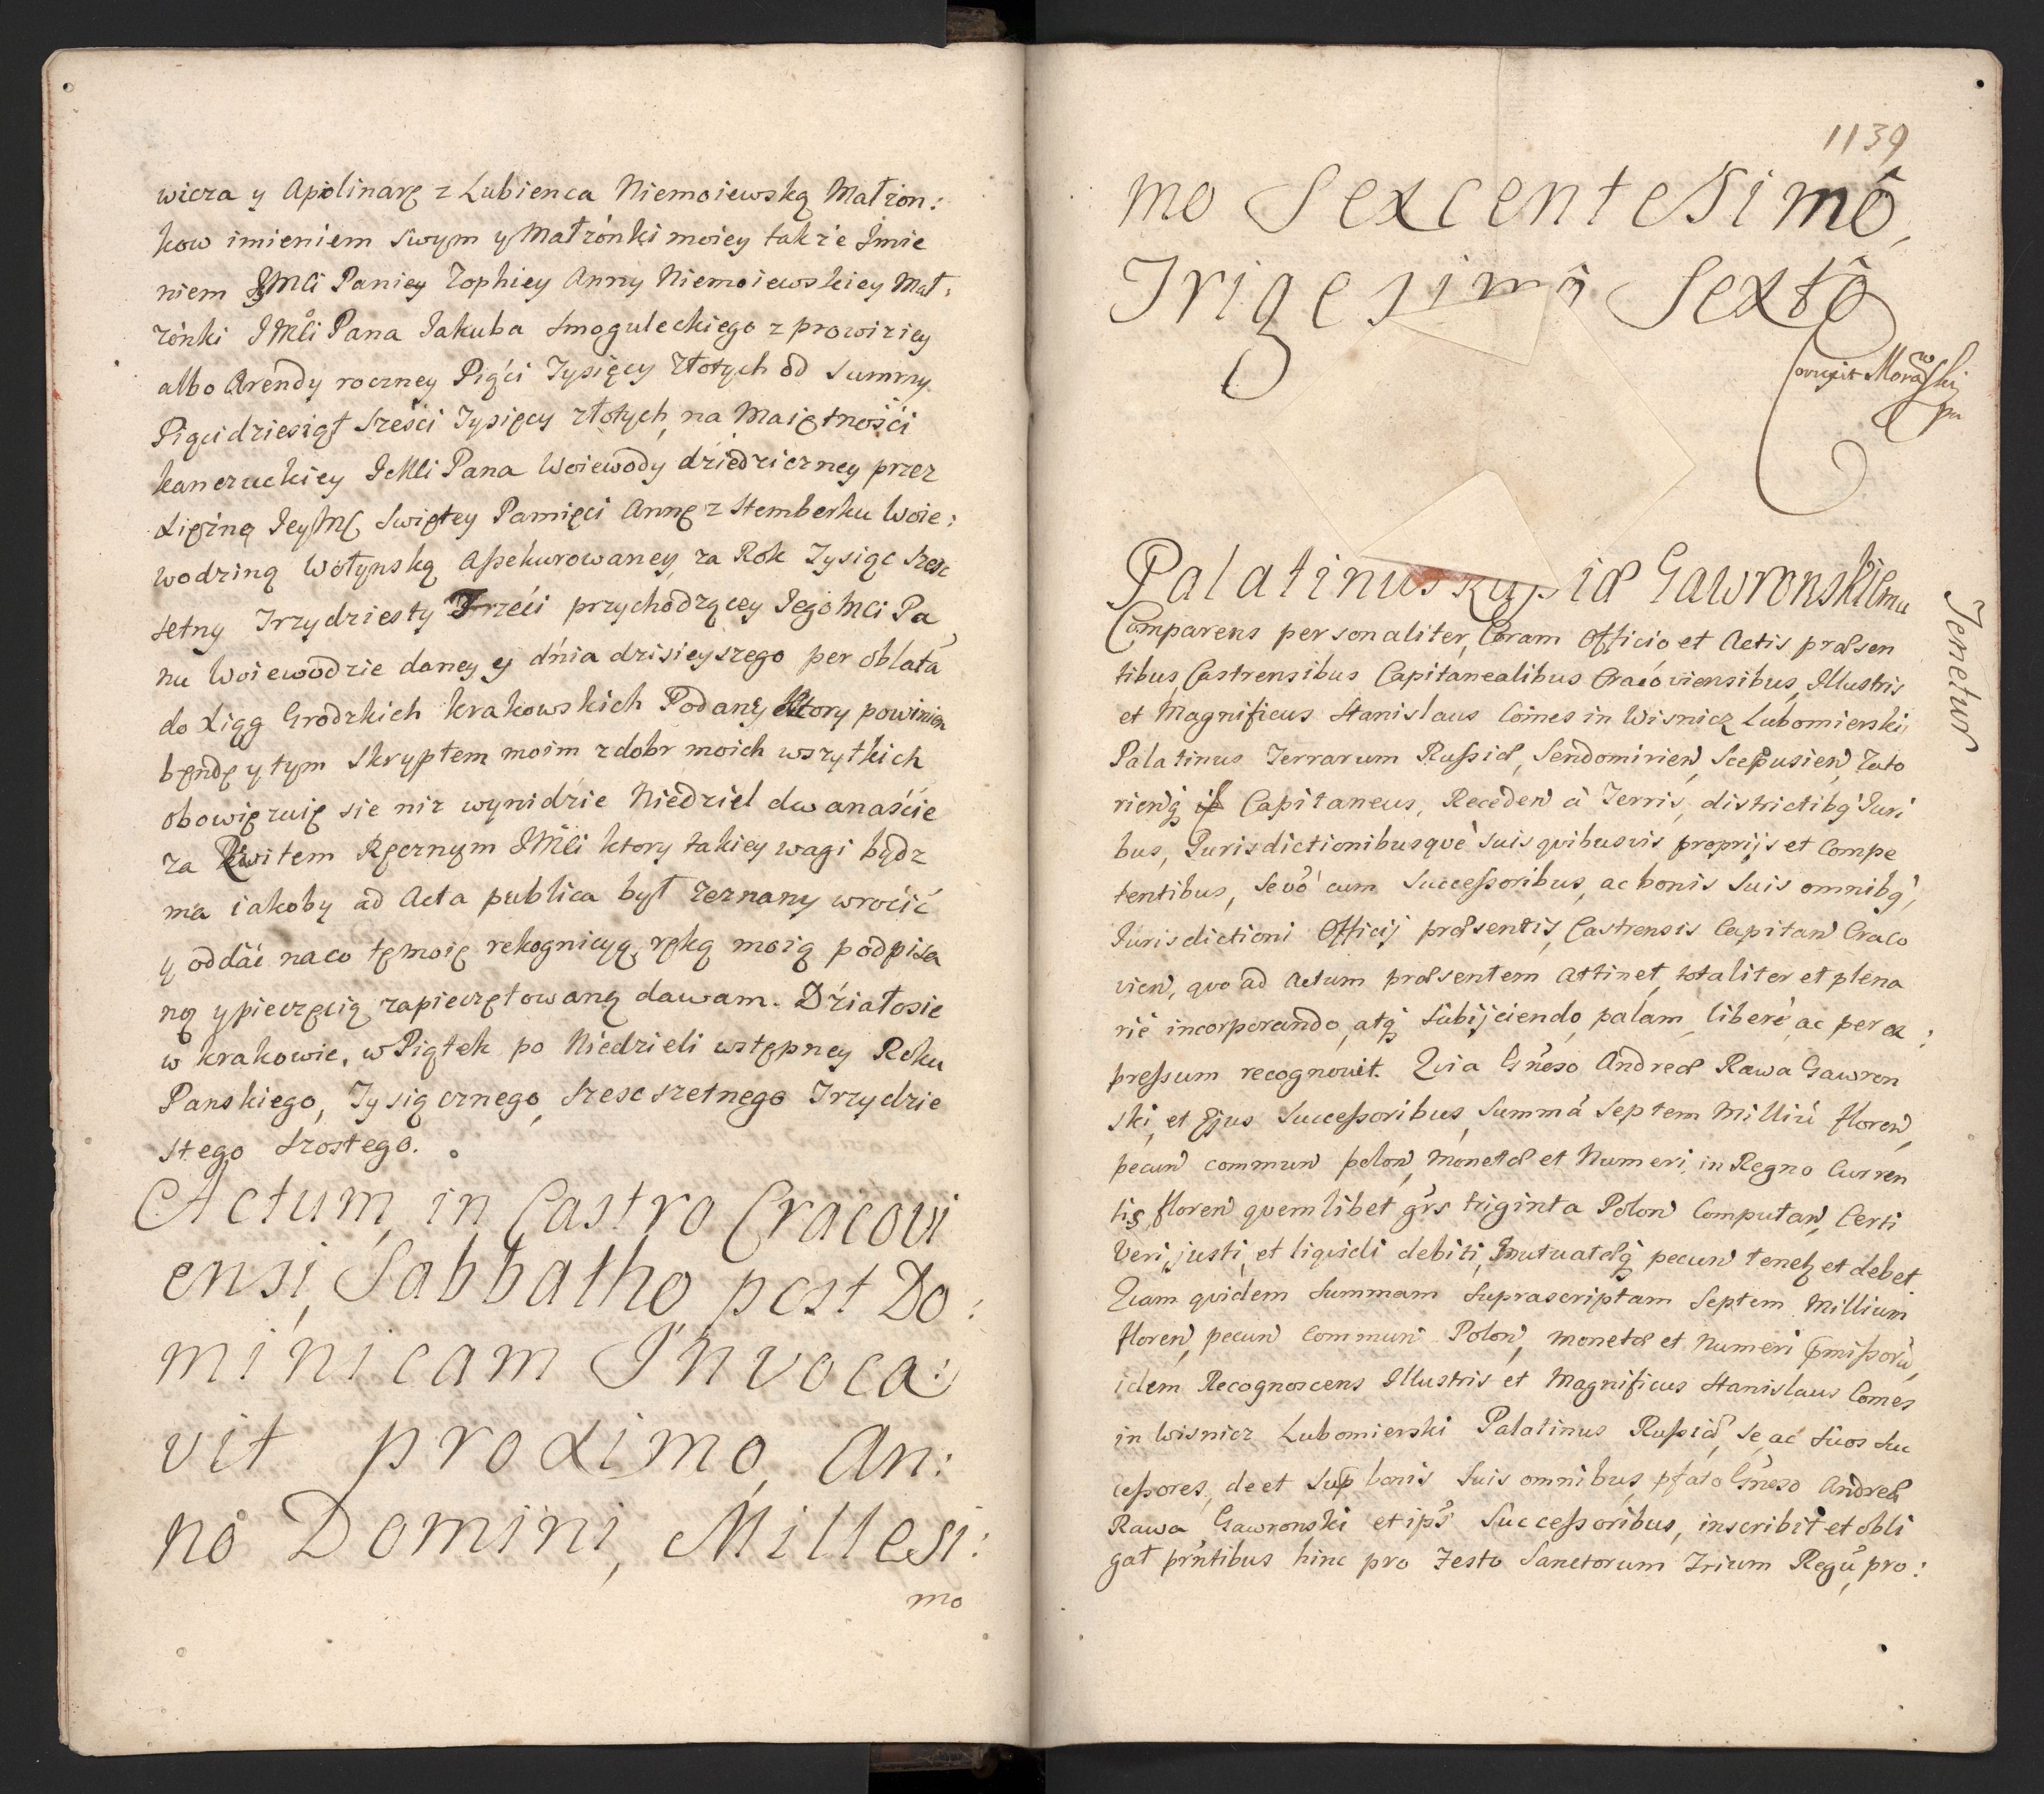 wicza y Apolinarę z Lubienca Niemoiewską Małżon:
kow imieniem swym y Małżonki moiey także Imie
niem JMći Paniey Zophiey Anny Niemoiewskiey Mał:
żonki JMći Pana Jakuba Smoguleckiego z prowiziey
albo Arendy roczney Piąći Tysięcy Złotych od Summy
Piąćidziesiąt Sześci Tysięcy złotych, na Maiętnośći
kanczuckiey JeMći Pana Woiewody dziedziczney przez
Xiężną JeyMć Swiętey Pamięci Annę z Stemberku Woie:
wodziną Wołynską Assekurowaney, za Rok Tysiąc szesc
setny Trzydziesty Trzeći przychodzącey JegoMći Pa
nu Woiewodzie daney y dnia dzisieyszego per oblatā
do Xiąg Grodzkich krakowskich Podany ktory powinien
bęndę y tym Skryptem moim z dobr moich wszytkich
obowięzuię sie niz wynidźie Niedziel dwanaśćie
za kwitem Ręcznym JMći ktory takiey wagi bydz
ma iakoby ad Acta publica był zeznany wroćić
y oddáć na co tę moię rekognicyą, ręką moią podpisa
ną y pieczęcią zapieczętowaną dawam. Dźiałosie
w krakowie, w Piątek po Niedzieli wstępney Roku
Panskiego, Tysiącznego, szescsetnego Trzydzie
stego szostego.
Actum, in Castro Cracovi
ensi, Sabbatho post Do:
minicam Invoca:
vit proximo, An:
no Domini, Millesi:
mo
1139
mo Sexcentesimô,
Trigesimô Sextô
Corrigit Morawski
Palatinus Gawronskiemu
Tenetur
Comparens personaliter, Coram Officio et Actis præsen
tibus, Castrensibus Capitanealibus Cracoviensibus, Illustris
et Magnificus Stanislaus Comes in Wisnicz Lubomierski,
Palatinus Terrarum Russiæ, Sendomirien, Scepusien, Zato
rienq Capitaneus, Receden à Terris, districtibq Juri
bus, Jurisdictionibusquè suis quibusvis proprijs et compe
tentibus, Sevō cum Successoribus, ac bonis suis omnibq,
Jurisdictioni Officij præsentis, Castrensis Capitan Craco
vien, quo ad Actum præsentem attinet, totaliter et plena
riè incorporando, atq subijciendo, palam, liberè ac per ex:
pressum recognovit. Quia Gñoso Andreæ Rawa Gawron
ski, et Ejus Successoribus, Summā Septem Milliū floren,
pecun commun polon, monetæ et Numeri, in Regno Curren
tis, floren quemlibet grs triginta Polon Computan, Certi
Veri, justi, et liquidi debiti, Mutuatæq pecun tenetz et debet
Quam quidem Summam Suprascriptam Septem Millium
floren, pecun commun Polon, monetæ et Numeri p̄missorū,
idem Recognoscens Illustris et Magnificus Stanislaus Comes
in Wisnicz Lubomierski Palatinus Russiæ, se, ac suos Suc
cessores, de et sup bonis suis omnibus, pfato Gñoso Andreæ
Rawa Gawronski et ips Successoribus, inscribit et obli
gat prntibus hinc pro Festo Sanctorum Trium Regū, pro: